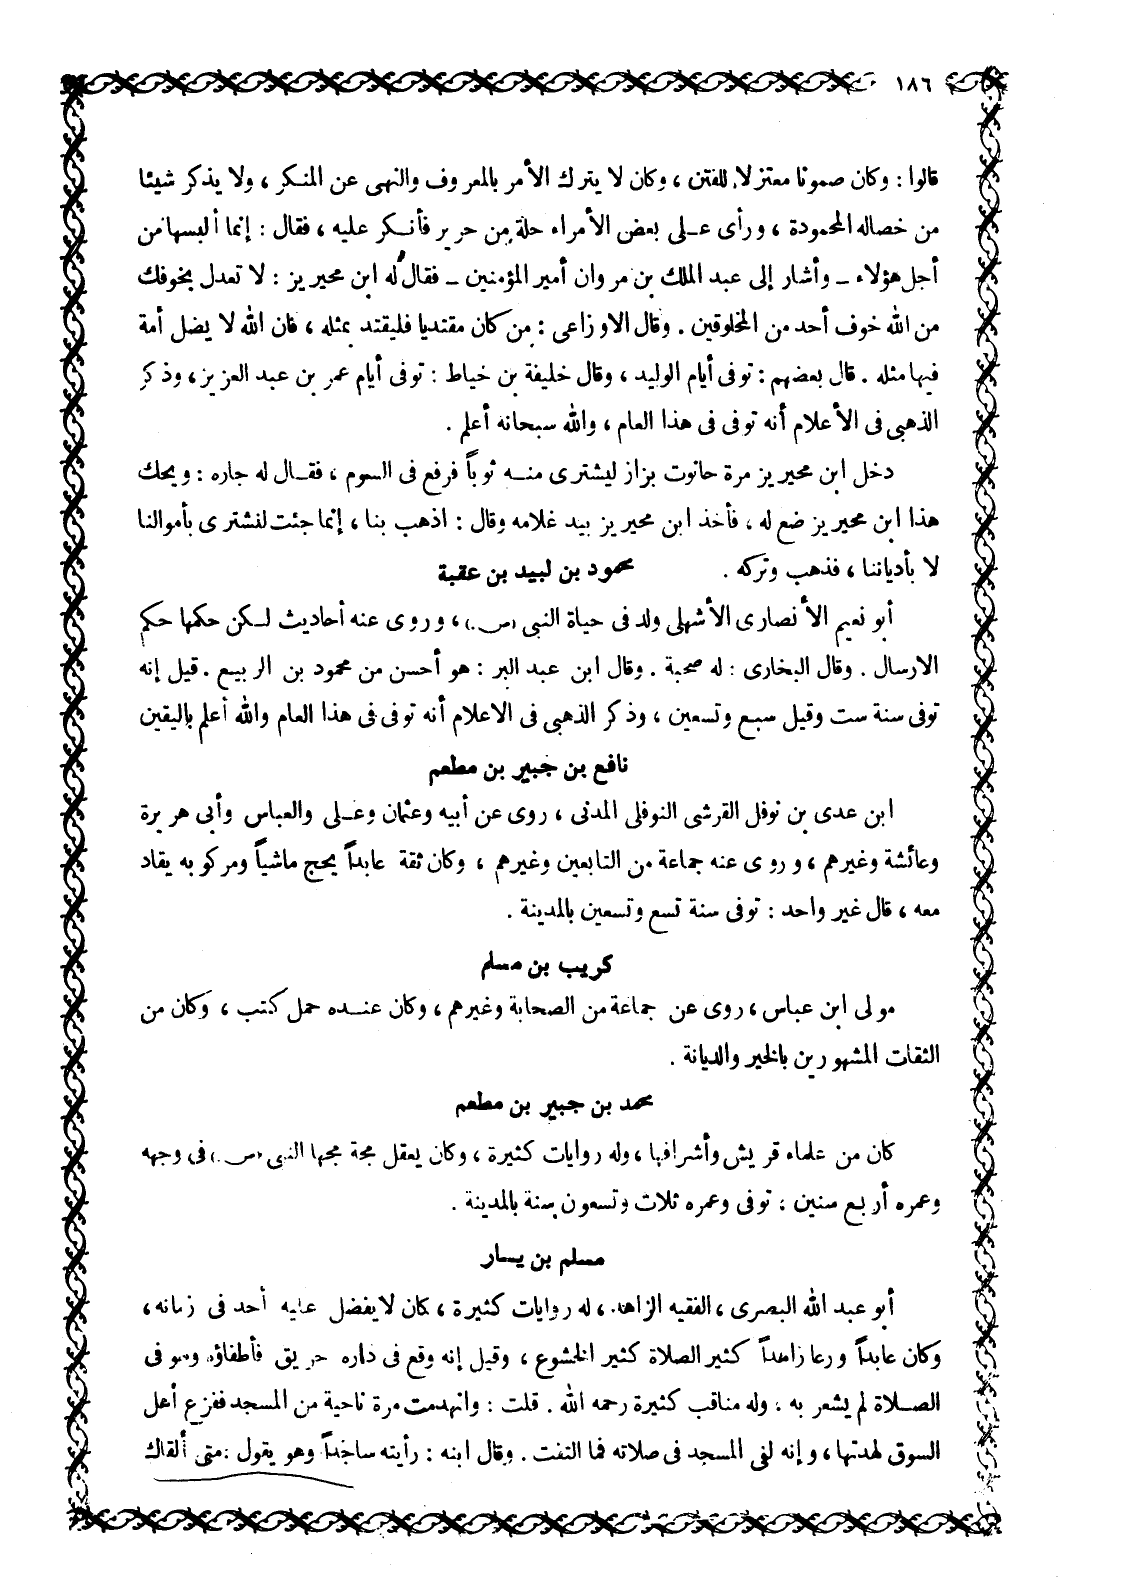 ١٨٦
قالوا : وكان صموتا معتزلا للفتن ، وكان لا يترك الأمر بالمعروف والنهى عن المنكر ، ولا يذكر شيئا
من خصاله المحمودة ، ورأى على بعض الأمراء حلة من حرير فأنكر عليه ، فقال : إنما ألبسها من
أجل هؤلاء ـ وأشار إلى عبد الملك بن مروان أمير المؤمنين ـ فقال له ابن محيريز : لا تعدل بخوفك
من الله خوف أحد من المخلوقين . وقال الاوزاعى : من كان مقتديا فليقتد بمثله ، فان الله لا يضل أمة
فيها مثله . قال بعضهم : توفى أيام الوليد ، وقال خليفة بن خياط : توفى أيام عمر بن عبد العزيز ، وذكر
الذهبى فى الأعلام أنه توفى فى هذا العام ، والله سبحانه أعلم .
دخل ابن محيريز مرة حانوت بزاز ليشترى منه ثوباً فرفع فى السوم ، فقال له جاره : ويحك
هذا ابن محيريز ضع له ، فأخذ ابن محيريز بيد غلامه وقال : اذهب بنا ، إنما جئت لنشترى بأموالنا
لا بأدياننا ، فذهب وتركه . محمود بن لبيد بن عقبة
أبو نعيم الأنصارى الأشهلى ولد فى حياة النبى (ص) ، وروى عنه أحاديث لكن حكمها حكم
الارسال . وقال البخارى : له صحبة . وقال ابن عبد البر : هو أحسن من محمود بن الربيع . قيل إنه
توفى سنة ست وقيل سبع وتسعين ، وذكر الذهبى فى الاعلام أنه توفى فى هذا العام والله أعلم باليقين
نافع بن جبير بن مطعم
ابن عدى بن نوفل القرشى النوفلى المدنى ، روى عن أبيه وعثمان وعلى والعباس وأبى هريرة
وعائشة وغيرهم ، وروى عنه جماعة من التابعين وغيرهم ، وكان ثقة عابداً يحج ماشياً ومركوبه يقاد
معه ، قال غير واحد : توفى سنة تسع وتسعين بالمدينة .
كريب بن مسلم
مولى ابن عباس ، روى عن جماعة من الصحابة وغيرهم ، وكان عنده حمل كتب ، وكان من
الثقات المشهورين بالخير والديانة .
محمد بن جبير بن مطعم
كان من علماء قريش وأشرافها ، وله روايات كثيرة ، وكان يعقل مجة مجها النبى (ص) فى وجهه
وعمره أربع سنين ، توفى وعمره ثلاث وتسعون سنة بالمدينة .
مسلم بن يسار
أبو عبد الله البصرى ، الفقيه الزاهد ، له روايات كثيرة ، كان لا يفضل عليه أحد فى زمانه ،
وكان عابداً ورعا زاهداً كثير الصلاة كثير الخشوع ، وقيل إنه وقع فى داره حريق فأطفاؤه وهو فى
الصلاة لم يشعر به ، وله مناقب كثيرة رحمه الله . قلت : وانهدمت مرة ناحية من المسجد ففزع أهل
السوق لهدتها ، وإنه لفى المسجد فى صلاته فما التفت . وقال ابنه : رأيته ساجداً وهو يقول : متى ألقاك